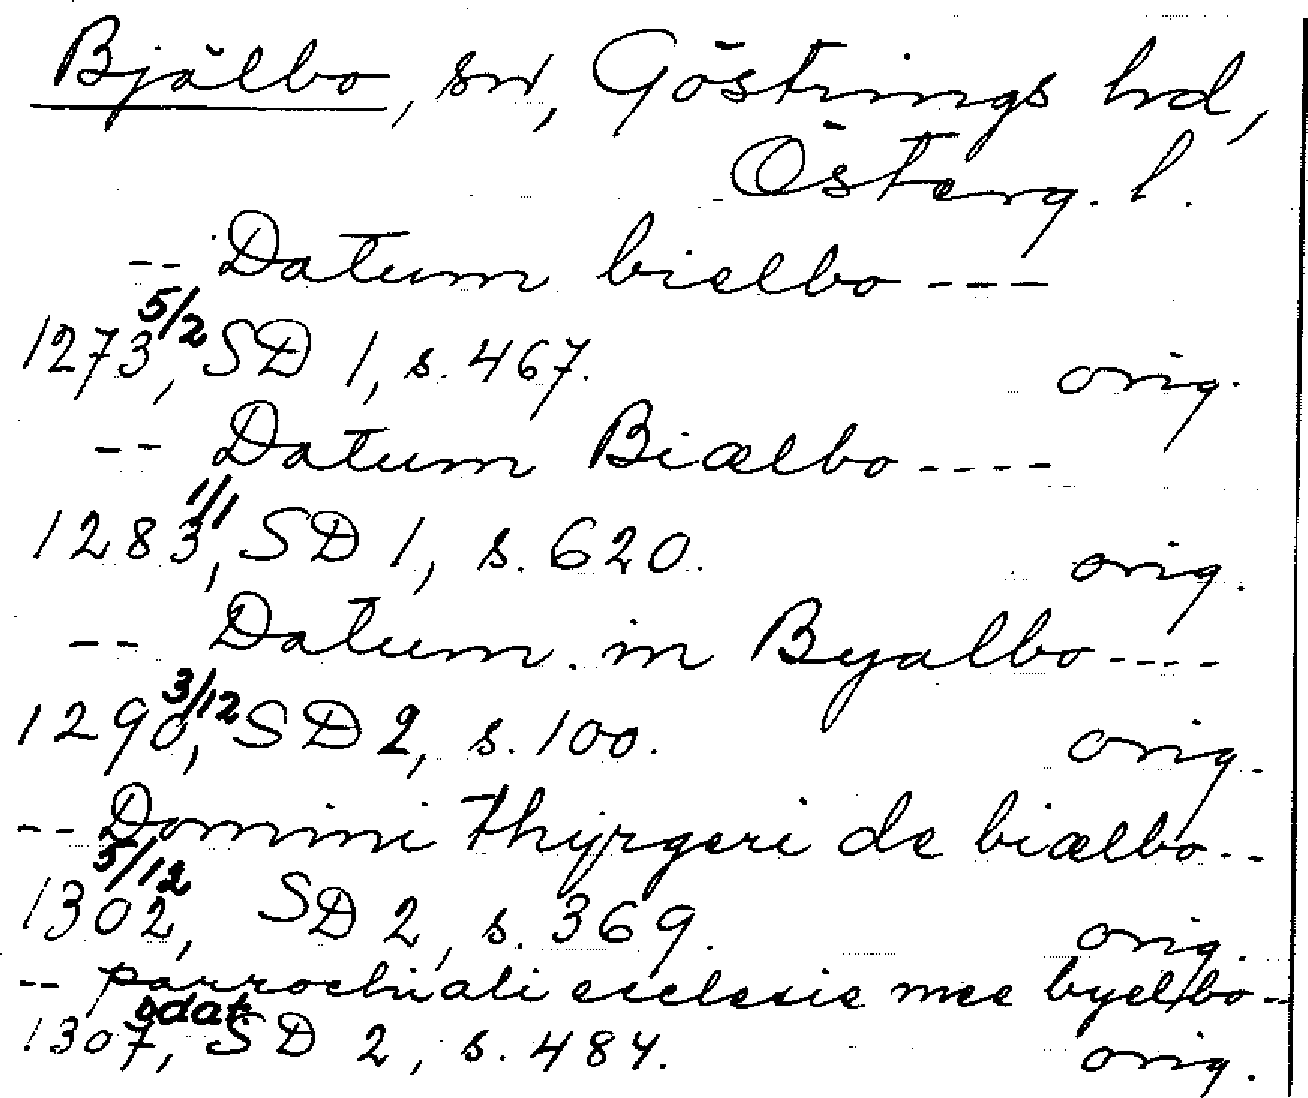 Bjälbo, sn, Göstrings hd,
Österg. l.
-- Datum bielbo ---
1273 5/2, SD 1, s. 467. orig.
-- Datum Biælbo ----
1283 1/1, SD 1, s. 620. orig.
-- Datum in Byalbo ----
1290 3/12, SD 2, s. 100. orig.
-- Domini Thyrgeri de biælbo --
1302 5/12, SD 2, s. 369. orig.
-- parrochiali ecclesie mee byelbo --
1307 odat, SD 2, s. 484. orig.